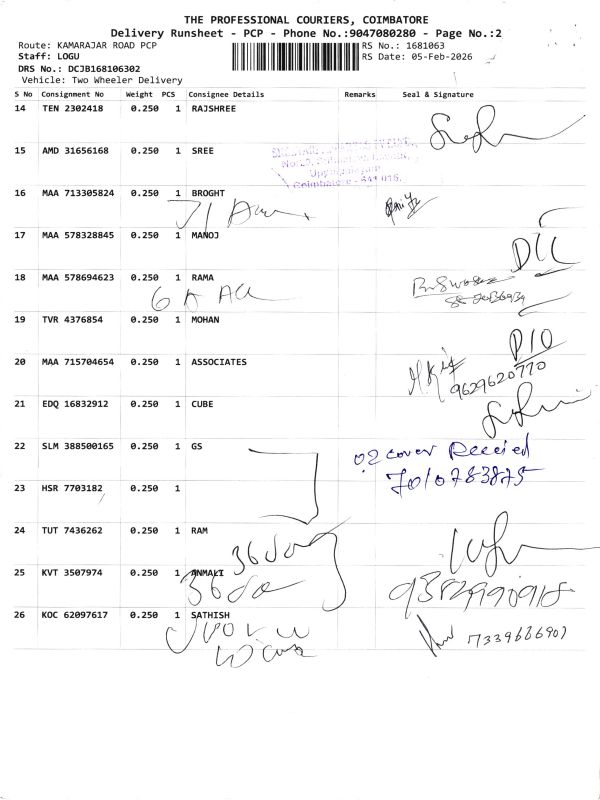 THE PROFESSIONAL COURIERS, COIMBATORE
Delivery Runsheet - PCP - Phone No.:9047080280 - Page No.:2
Route: KAMARAJAR ROAD PCP
RS No.: 1681063
Staff: LOGU
RS Date: 05-Feb-2026
DRS No.: DCJB168106302
Vehicle: Two Wheeler Delivery
S No Consignment No Weight PCS Consignee Details Remarks Seal & Signature
14 TEN 2302418 0.250 1 RAJSHREE
15 AMD 31656168 0.250 1 SREE
Coimbatore - 641 015.
16 MAA 713305824 0.250 1 BROGHT
17 MAA 578328845 0.250 1 MANOJ
18 MAA 578694623 0.250 1 RAMA
19 TVR 4376854 0.250 1 MOHAN
20 MAA 715704654 0.250 1 ASSOCIATES
9629620770
21 EDQ 16832912 0.250 1 CUBE
22 SLM 388500165 0.250 1 GS
02 cover Received
7010783875
23 HSR 7703182 0.250 1
24 TUT 7436262 0.250 1 RAM
25 KVT 3507974 0.250 1 ANMALI
26 KOC 62097617 0.250 1 SATHISH